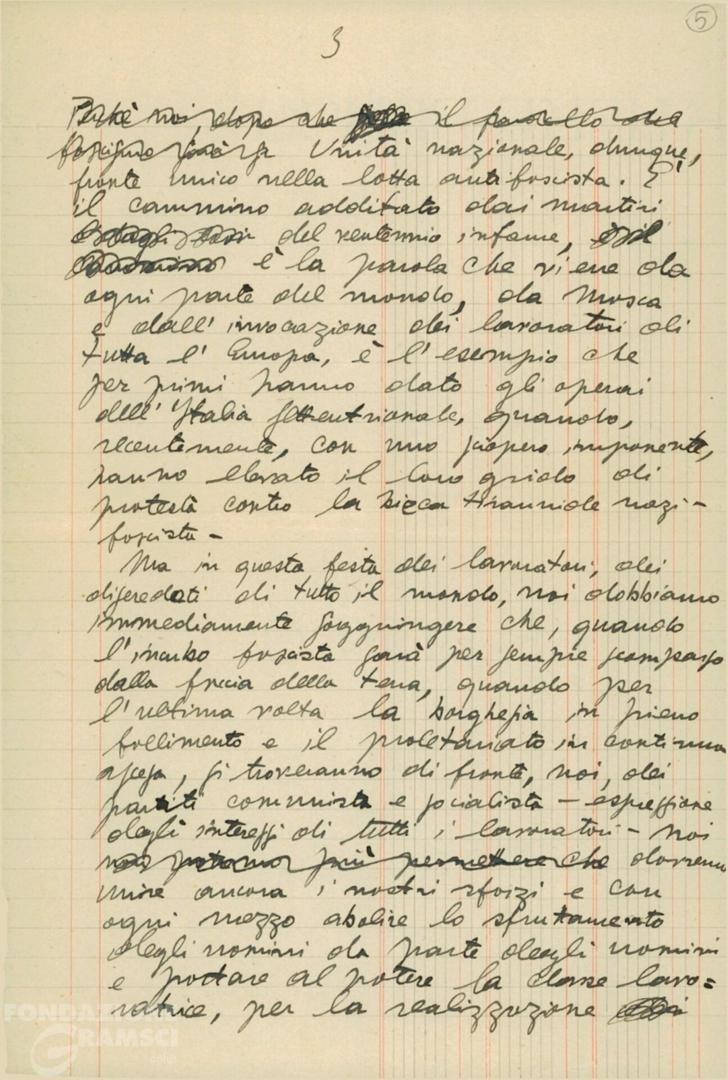 5
3
Perchè noi, dopo che il fardello del
fascismo sarà Unità nazionale, dunque,
fronte unico nella lotta antifascista. È
il cammino additato dai martiri
del ventennio infame,
è la parola che viene da
ogni parte del mondo, da Mosca
e dall'invocazione dei lavoratori di
tutta l'Europa, è l'esempio che
per primi hanno dato gli operai
dell'Italia settentrionale, quando,
recentemente, con uno sciopero imponente,
hanno elevato il loro grido di
protesta contro la bieca tirannide nazi-
fascista -
Ma in questa festa dei lavoratori, dei
diseredati di tutto il mondo, noi dobbiamo
immediamente soggiungere che, quando
l'incubo fascista sarà per sempre scomparso
dalla faccia della terra, quando per
l'ultima volta la borghesia in pieno
fallimento e il proletariato in continua
ascesa, si troveranno di fronte, noi, dei
partiti comunista e socialista - espressione
degli interessi di tutti i lavoratori - noi
non potremo più permettere che dovremo
unire ancora i nostri sforzi e con
ogni mezzo abolire lo sfruttamento
degli uomini da parte degli uomini
e portare al potere la classe lavo=
ratrice, per la realizzazione
FONDAZIONE
GRAMSCI